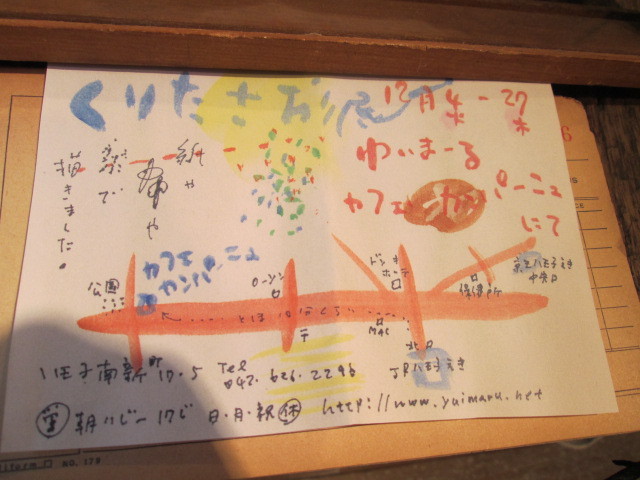 くりたさおり展
12月4 - 27
木 木
ゆいまーる
カフェ カンパーニュ
にて
紙や
布や
で
描きました。
カフェ
カンパーニュ
公園
ローソン
ドンキ
ホーテ
保健所
京王八王子えき
中央口
とほ10分くらい
〒
MAC
北口
JR八王子えき
八王子南新町17-5 Tel
042-626-2296
営 朝八じー17じ 日・月・祝 休 http://www.yuimaru.net
NO. 173